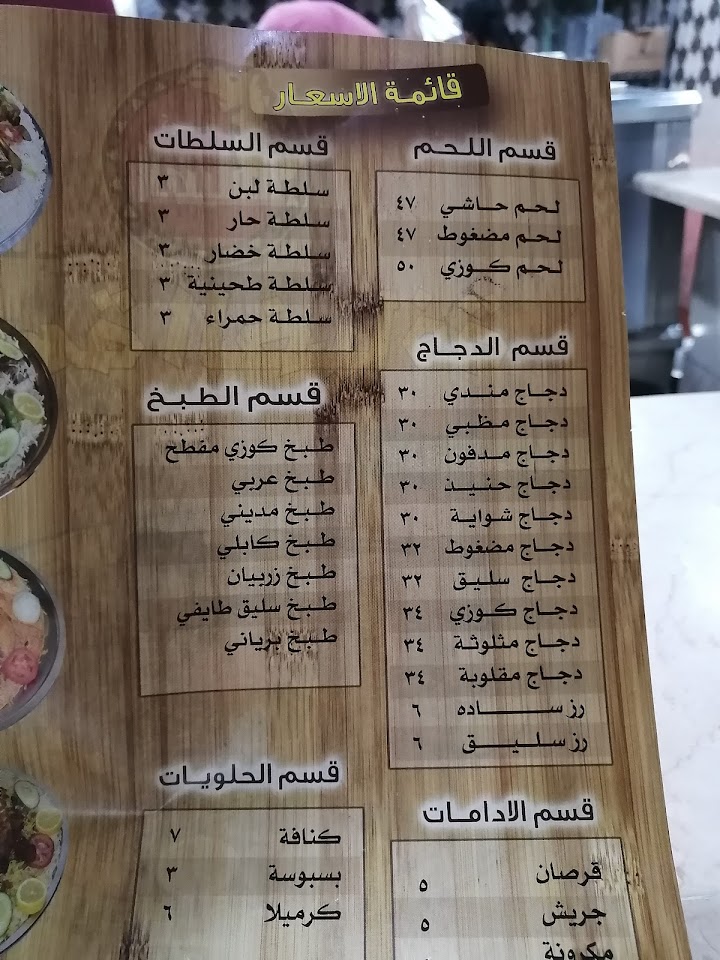 قائمة الاسعار
قسم اللحم
لحم حاشي ٤٧
لحم مضغوط ٤٧
لحم كوزي ٥٠
قسم الدجاج
دجاج مندي ٣٠
دجاج مظبي ٣٠
دجاج مدفون ٣٠
دجاج حنيذ ٣٠
دجاج شواية ٣٠
دجاج مضغوط ٣٢
دجاج سليق ٣٢
دجاج كوزي ٣٤
دجاج مثلوثة ٣٤
دجاج مقلوبة ٣٤
رز ساده ٦
رز سليق ٦
قسم الادامات
قرصان ٥
جريش ٥
مكرونة
قسم السلطات
سلطة لبن ٣
سلطة حار ٣
سلطة خضار ٣
سلطة طحينية ٣
سلطة حمراء ٣
قسم الطبخ
طبخ كوزي مفطح
طبخ عربي
طبخ مديني
طبخ كابلي
طبخ زربيان
طبخ سليق طايفي
طبخ برياني
قسم الحلويات
كنافة ٧
بسبوسة ٣
كرميلا ٦